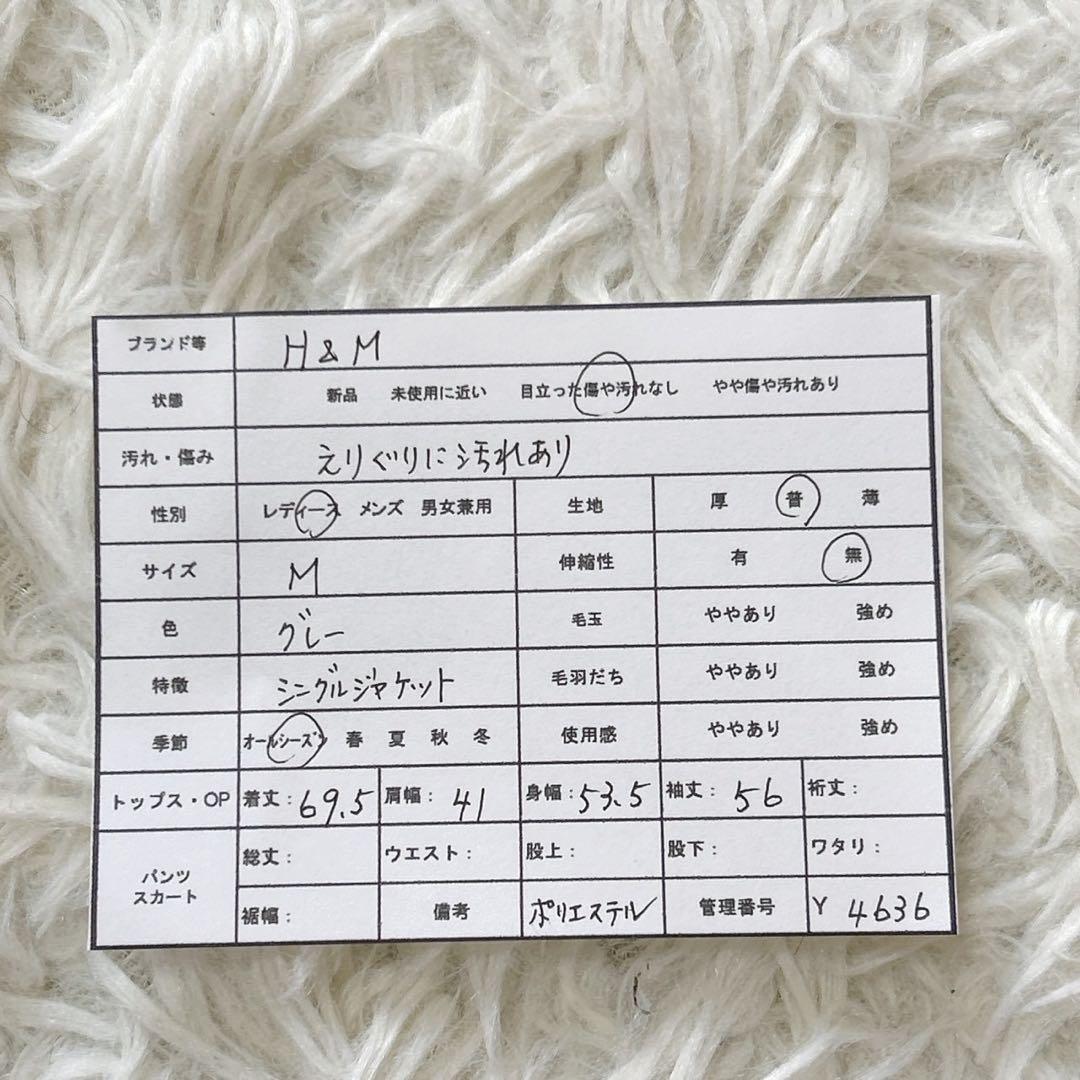 ブランド等 H&M
状態 新品 未使用に近い 目立った傷や汚れなし やや傷や汚れあり
汚れ・傷み えりぐりに汚れあり
性別 レディース メンズ 男女兼用 生地 厚 普 薄
サイズ M 伸縮性 有 無
色 グレー 毛玉 ややあり 強め
特徴 シングルジャケット 毛羽だち ややあり 強め
季節 オールシーズン 春 夏 秋 冬 使用感 ややあり 強め
トップス・OP 着丈:69.5 肩幅:41 身幅:53.5 袖丈:56 裄丈:
パンツ スカート 総丈: ウエスト: 股上: 股下: ワタリ:
裾幅: 備考 ポリエステル 管理番号 Y 4636